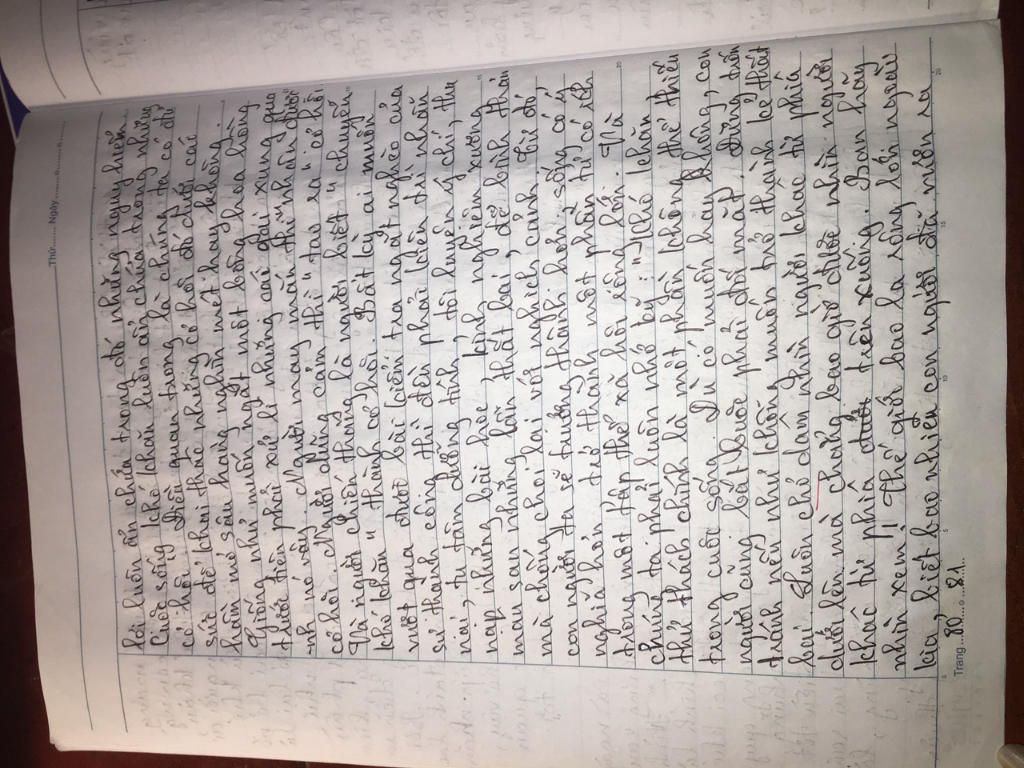 Thứ........Ngày.................
lại luôn ẩn chứa trong đó những nguy hiểm.
Cuộc sống, khó khăn luôn ẩn chứa trong những
cơ hội. Điều quan trọng là chúng ta có đủ
sức để khai thác những cơ hội đó dưới cái
hầm mỏ sâu hàng nghìn mét hay không.
Giống như muốn ngắt một bông hoa hồng
trước tiên phải xử lí những cái gai xung qua
nh nó vậy. Người may mắn thì "nhắn đuôi"
cơ hội. Người dũng cảm thì "tạo ra" cơ hội.
Và người chiến thắng là người biết "chuyển
khó khăn" thành cơ hội. Bất kỳ ai muốn
vượt qua được bài kiểm tra ngặt nghèo của
sự thành công thì đều phải kiên trì nhẫn
nại, tu tâm dưỡng tính, tôi luyện ý chí, thu
nạp những bài học, kinh nghiệm xương
máu sau những lần thất bại, để bình thản
mà chống chọi lại với nghịch cảnh. Từ đó,
con người ta sẽ trưởng thành hơn, sống có ý
nghĩa hơn, trở thành một phần tử có ích
trong một tập thể xã hội rộng lớn. Và
chúng ta phải luôn nhớ kỹ: "Khó khăn
thử thách chính là một phần không thể thiếu
trong cuộc sống. Dù có muốn hay không, con
người cũng bắt buộc phải đối mặt. Đừng trốn
tránh nếu như không muốn trở thành kẻ thất
bại. Luôn chỉ dám nhìn người khác từ phía
dưới lên mà chẳng bao giờ được nhìn người
khác từ phía trên xuống. Bạn hãy
nhìn xem!! Thế giới bao la rộng lớn ngoài
kia, biết bao nhiêu con người đã vươn ra
Trang...80.......81...